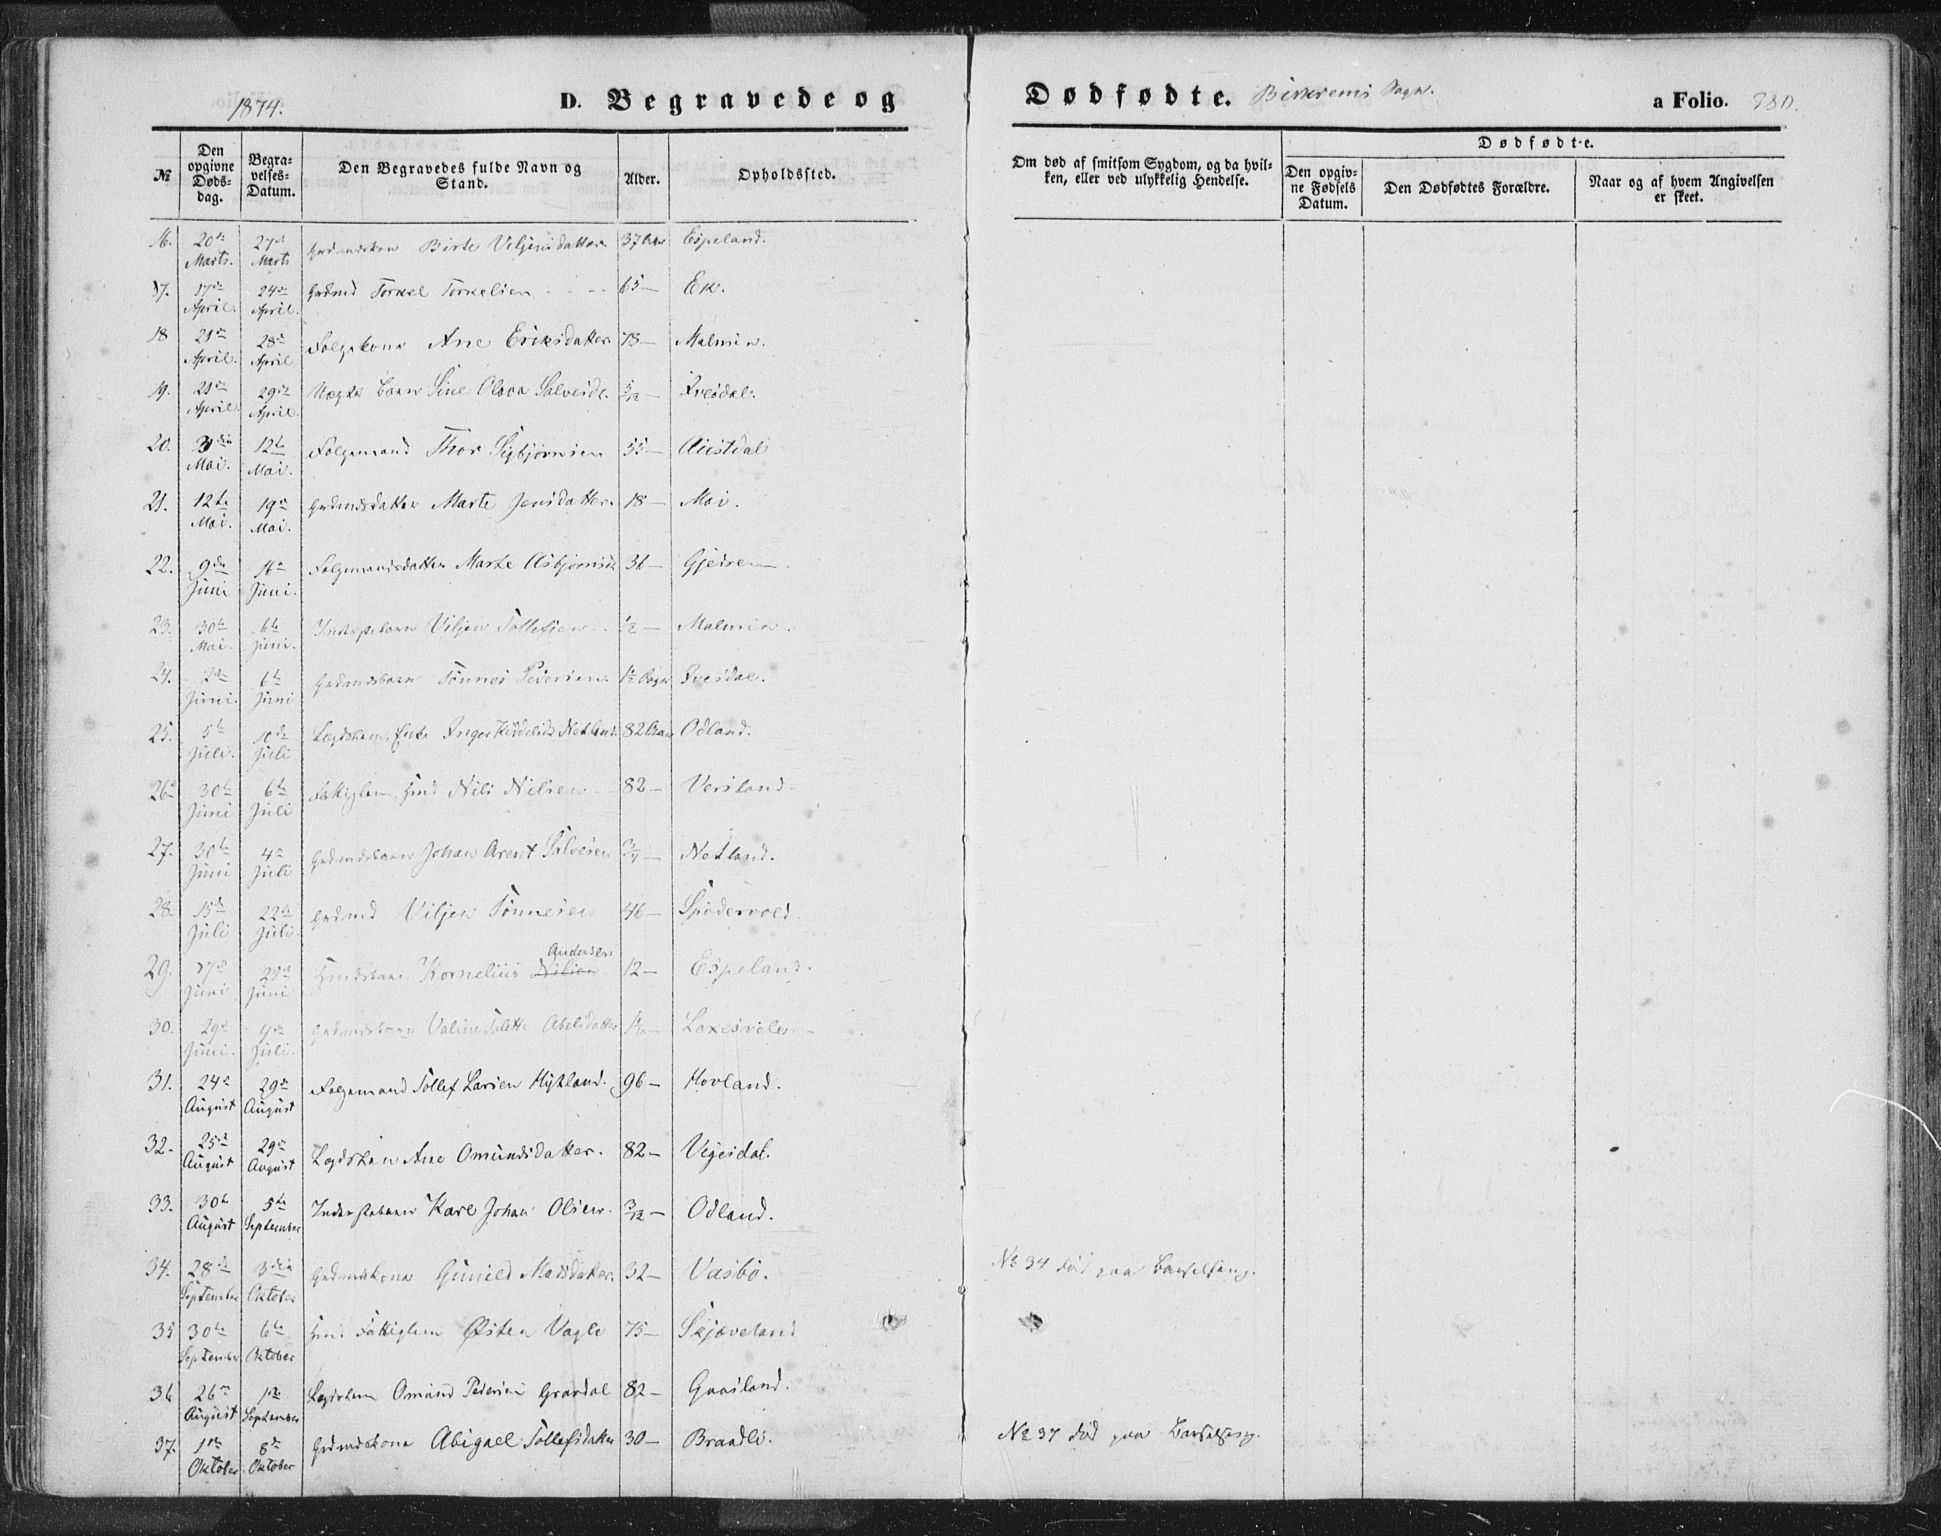 1874.
D. Begravede og Dødfødte. Birkrems Sogn. a Folio. 280.
№ | Den opgivne Døds-dag. | Begra-velses-Datum. | Den Begravedes fulde Navn og Stand. | Alder. | Opholdssted. | Om død af smitsom Sygdom, og da hvil-ken, eller ved ulykkelig Hendelse. | Dødfødte. | Den opgiv-ne Fødsels Datum. | Den Dødfødtes Forældre. | Naar og af hvem Angivelsen er skeet.
16. 20de Marts. 27de Marts Grdmdskone Birte Viljensdatter 37 Aar Espeland.
17. 17de April. 24de April. Grdmd Torkel Torkelsen 65 — Ek.
18 21de April. 28de April Folgekone Ane Eriksdatter 78 — Malmein.
19. 21de April. 29de April. Uægte Barn Sine Olava Salvesdr. 5/12 — Ivesdal.
20. 3die Mai. 12te Mai. Folgemand Thor Sigbjørnsen 55 — Austdal
21. 12te Mai. 19de Mai. Grdmdsdatter Marte Jensdatter 18 — Moi.
22. 9de Juni 16de Juni. Folgemandsdatter Marte Asbjørnsd. 36 — Gjedrem
23. 30te Mai. 6te Juni. Inderstebarn Viljen Tollefsen 1/2 — Malmein.
24. 2den Juni. 6te Juni Grdmdsbarn Tønnes Pedersen 1/2 Dage Ivesdal.
25. 5te Juli. 10de Juli Lægdslem, Enke Inger Netland 82 Aar Odland.
26. 30te Juni 6te Juli Fattiglem, Hmd Nils Nilsen 82 — Versland
27. 30te Juni 4de Juli Grdmdsbarn Johan Arent Salvesen 3/4 — Netland.
28. 15de Juli 22de Juli. Grdmd Viljen Tønnesen 46 — Spødervold
29. 17de Juni 23de Juni Hmdsbarn Kornelius Nilsen Andersen 12 — Espeland.
30. 29de Juni. 4de Juli. Grdmdsbarn Valine Talette Abelsdatter Laxesvele.
31. 24de August 29de August Folgemand Tollef Larsen Hytland. 96 — Hovland.
32. 25de August 29de August Lægdslem Ane Omundsdatter. 82 — Vegesdal.
33. 30te August 5te September Inderstebarn Karl Johan Olsen. 3/12 — Odland.
34. 28de September 3die Oktober Grdmdskone Gunild Madsdatter. 32 — Vasbø. № 34 død paa Barselseng.
35 30te September 6te Oktober Hmd Fattiglem Østen Vagle 75 — Skjæveland
36 26de August 1ste September Lægdslem Omund Pedersen Gravdal 82 — Gaasland.
37. 1ste Oktober 8de Oktober Grdmdskone Abigael Tollefsdatter 30 — Brandli. № 37 død paa Barselseng.